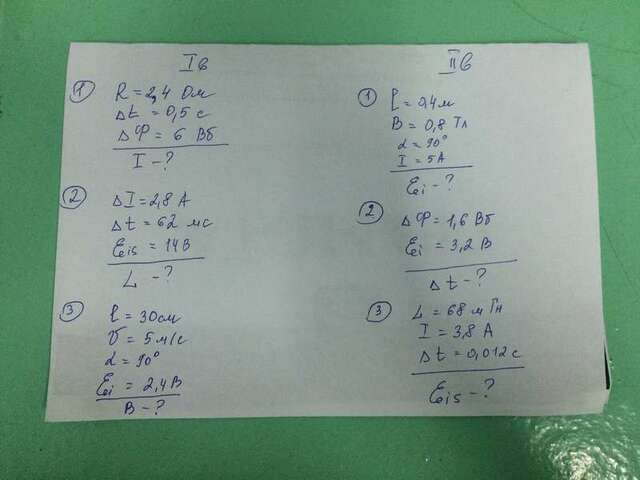 I в
① R = 2,4 Ом
Δt = 0,5 с
Δφ = 6 Вб
I - ?
② ΔI = 2,8 А
Δt = 62 мс
Ɛis = 14 В
L - ?
③ l = 30 см
v = 5 м/с
α = 90°
Ɛi = 2,4 В
B - ?
II в
① l = 0,4 м
B = 0,8 Тл
α = 90°
I = 5 А
Ɛi - ?
② Δφ = 1,6 Вб
Ɛi = 3,2 В
Δt - ?
③ L = 68 мГн
I = 3,8 А
Δt = 0,012 с
Ɛis - ?